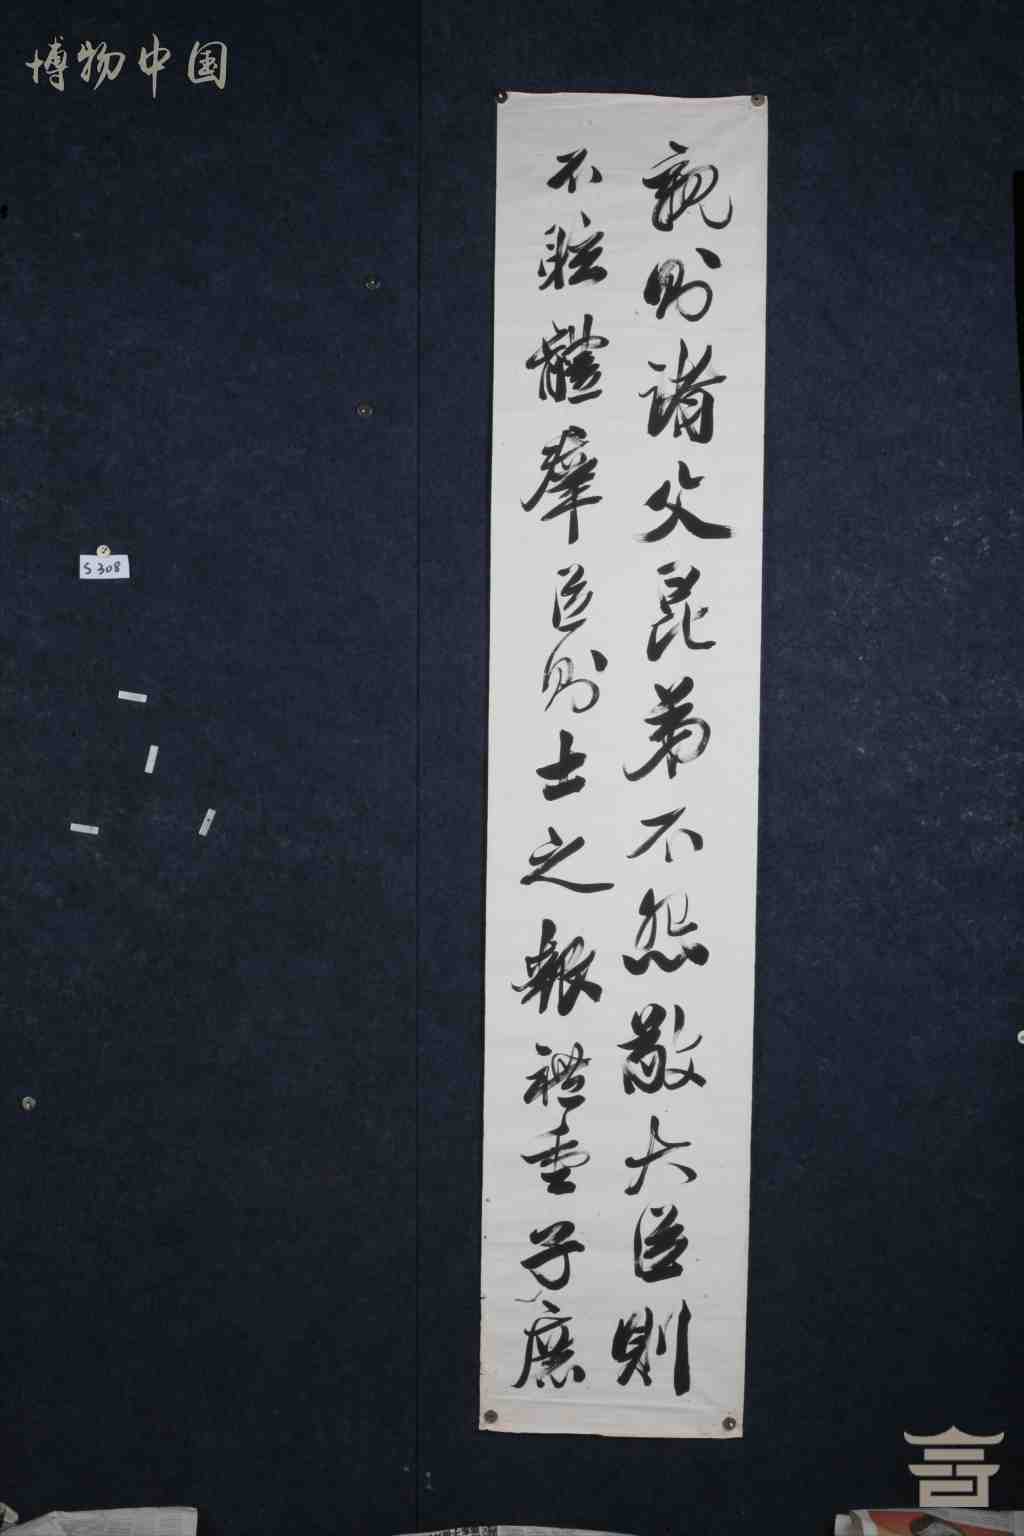 博物中国
親則諸父昆弟不怨敬大臣則
不眩體羣臣則士之報禮重子庶
S 308